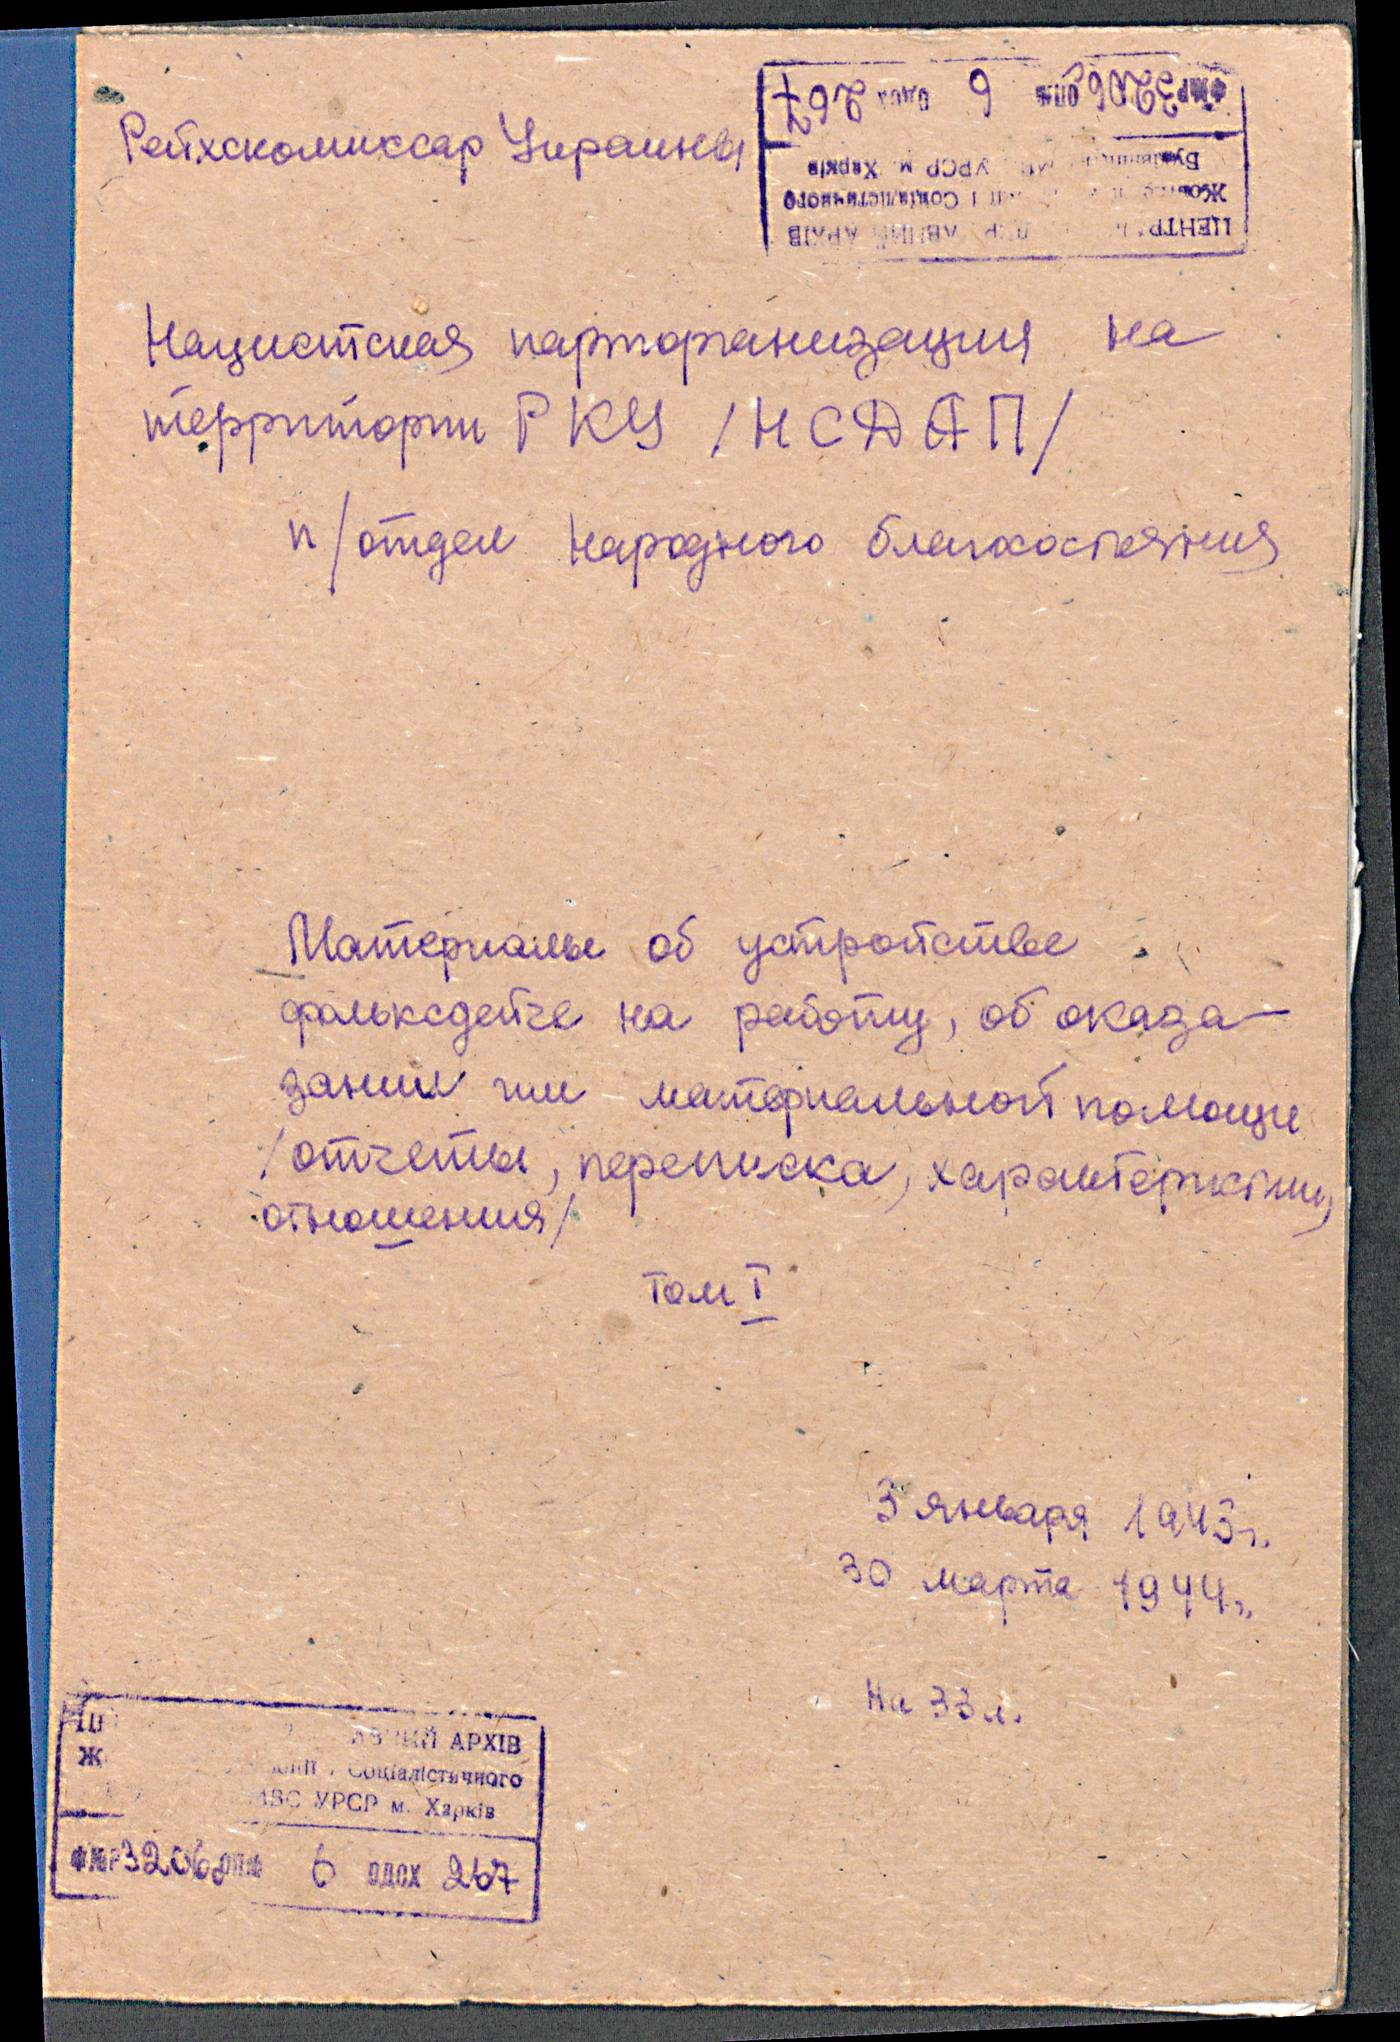 Рейхскомиссар Украины
ЦЕНТР АВНИЙ АРХІВ
Соціалістичного
УРСР м. Харків
Ф№Р3206 ОП№ 6 ОДСХ 267
Нацистская парторганизация на
территории РКУ /НСДАП/
п/отдел народного благосостояния
Материалы об устройстве
фольксдейче на работу, об оказа-
зании им материальной помощи
/отчеты, переписка, характеристики,
отношения/
том I
3 января 1943г.
30 марта 1944г.
На 33 л.
АВНИЙ АРХІВ
Соціалістичного
МВС УРСР м. Харків
Ф№Р3206 ОП№ 6 ОДСХ 267